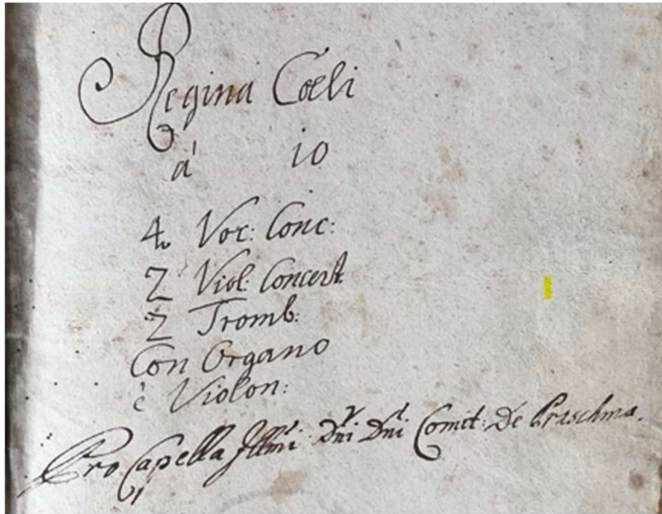 Regina Cœli
á 10
4 Voc: Conc:
2 Viol: Concert
2 Tromb:
Con Organo
è Violon:
Pro Capella Illmi Dni Dni Comit: De